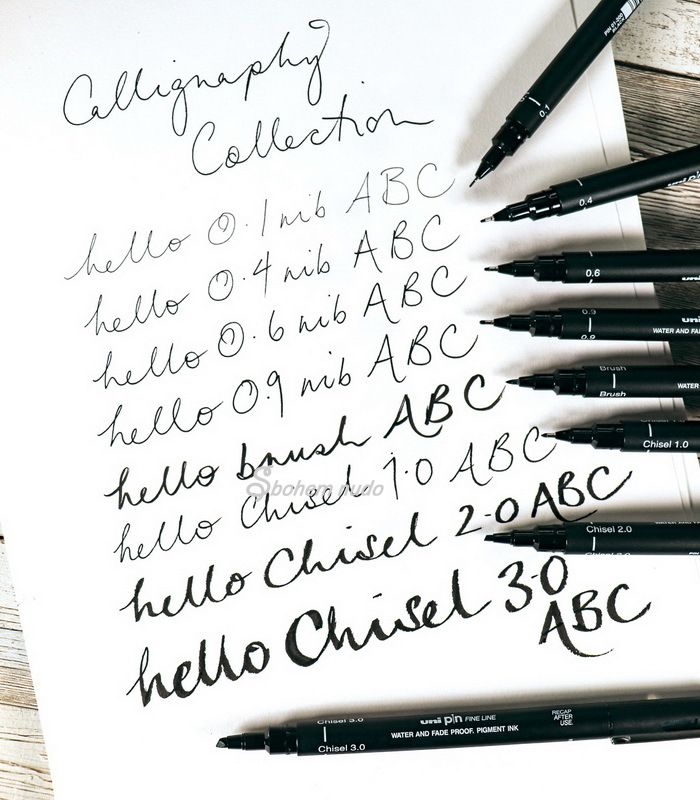 Calligraphy
Collection
hello 0.1 nib ABC
hello 0.4 nib ABC
hello 0.6 nib ABC
hello 0.9 nib ABC
hello brush ABC
hello Chisel 1.0 ABC
hello Chisel 2.0 ABC
hello Chisel 3.0
ABC
bohem nudo
0.1
0.4
0.6
0.9
0.9
uni
WATER AND FA
Brush
Brush
Chisel 1.0
Chisel 2.0
Chisel 3.0
Chisel 3.0
uni pin FINE LINE
WATER AND FADE PROOF, PIGMENT INK
RECAP
AFTER
USE.